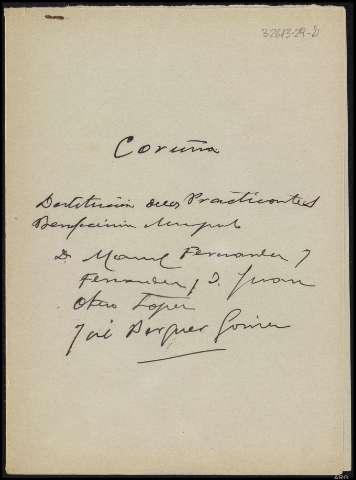 32613-29-D
Coruña
Destitución de los Practicantes
Beneficencia Municipal
D. Manuel Fernandez y
Fernandez, D. Juan
Otero Lopez
José